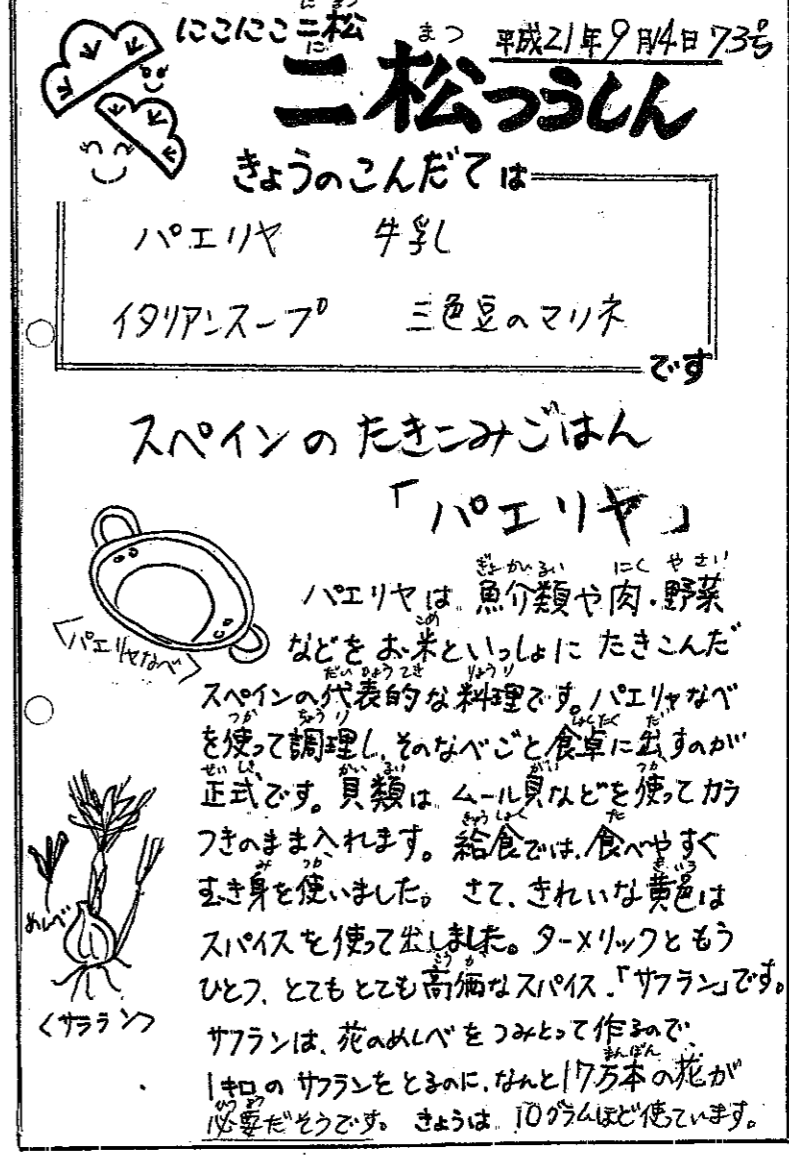 にこにこ二松
平成21年9月14日 73号
二松つうしん
きょうのこんだては
パエリヤ 牛乳
イタリアンスープ 三色豆のマリネ
です
スペインのたきこみごはん
「パエリヤ」
パエリヤは魚介類や肉・野菜
などをお米といっしょにたきこんだ
<パエリヤなべ>
スペインの代表的な料理です。パエリヤなべ
を使って調理し、そのなべごと食卓に出すのが
正式です。貝類は、ムール貝などを使ってカラ
つきのまま入れます。給食では、食べやすく
むき身を使いました。さて、きれいな黄色は
めしべ
スパイスを使って出しました。ターメリックともう
ひとつ、とてもとても高価なスパイス、「サフラン」です。
<サフラン>
サフランは、花のめしべをつみとって作るので、
1キロのサフランをとるのに、なんと17万本の花が
必要だそうです。きょうは、10グラムほど使っています。